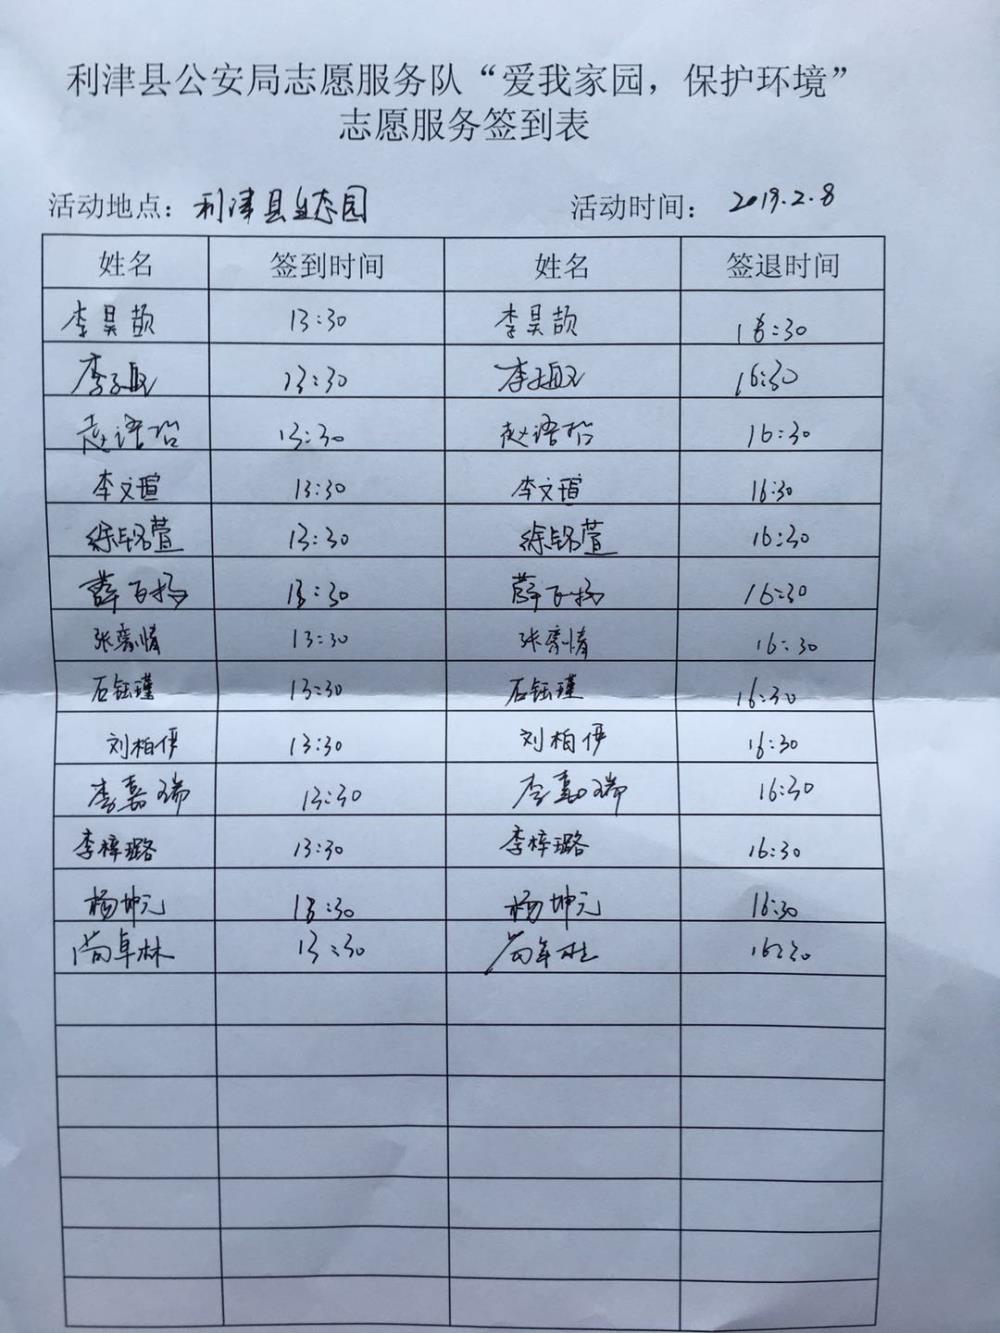 利津县公安局志愿服务队“爱我家园，保护环境”
志愿服务签到表
活动地点：利津县生态园 活动时间：2019.2.8
姓名 签到时间 姓名 签退时间
李昊颉 13:30 李昊颉 16:30
李子取 13:30 李子取 16:30
赵语珆 13:30 赵语珆 16:30
李文瑄 13:30 李文瑄 16:30
徐铭萱 13:30 徐铭萱 16:30
薛百扬 13:30 薛百扬 16:30
张豪情 13:30 张豪情 16:30
石钰瑾 13:30 石钰瑾 16:30
刘柏伊 13:30 刘柏伊 16:30
李嘉瑞 13:30 李嘉瑞 16:30
李梓璐 13:30 李梓璐 16:30
杨坤元 13:30 杨坤元 16:30
尚卓林 13:30 尚卓林 16:30